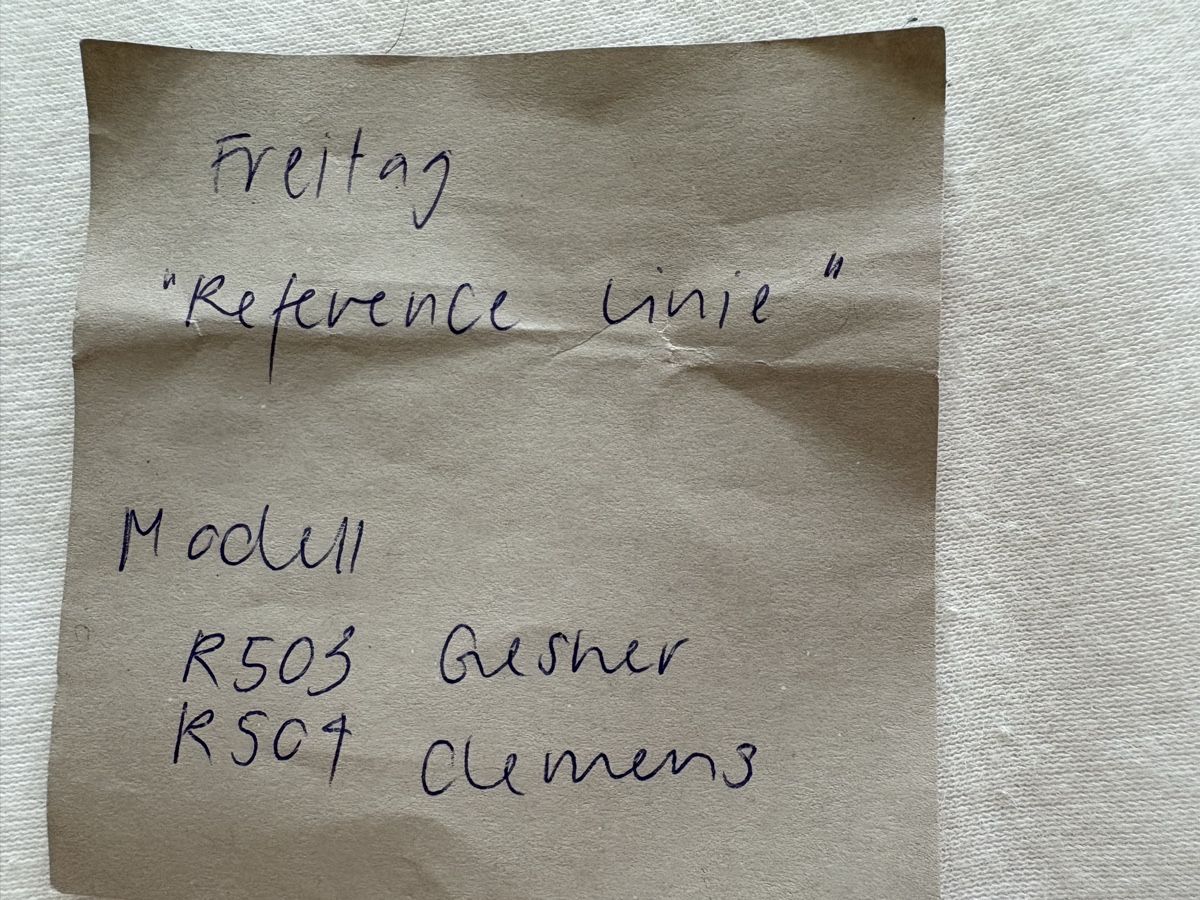 Freitag
"Reference Linie"
Modell
R503 Gesner
R504 Clemens